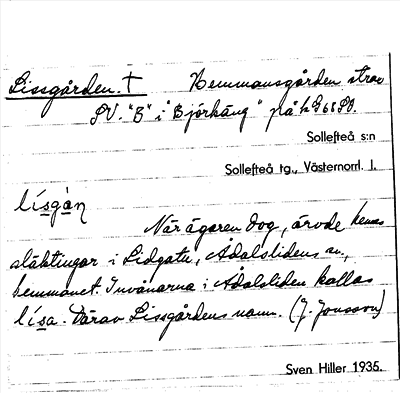 Lissgården. † Hemmansgården strax
SV. "B" i "Björkäng" på k G65SO.
Sollefteå s:n
Sollefteå tg., Västernorrl. l.
lísgàṇ
När ägaren dog, ärvde hennes
släktingar i Lidgatu, Ådalslidens sn.,
hemmanet. Invånarna i Ådalsliden kallas
lísa. Därav Lissgårdens namn. (J. Jonsson)
Sven Hiller 1935.